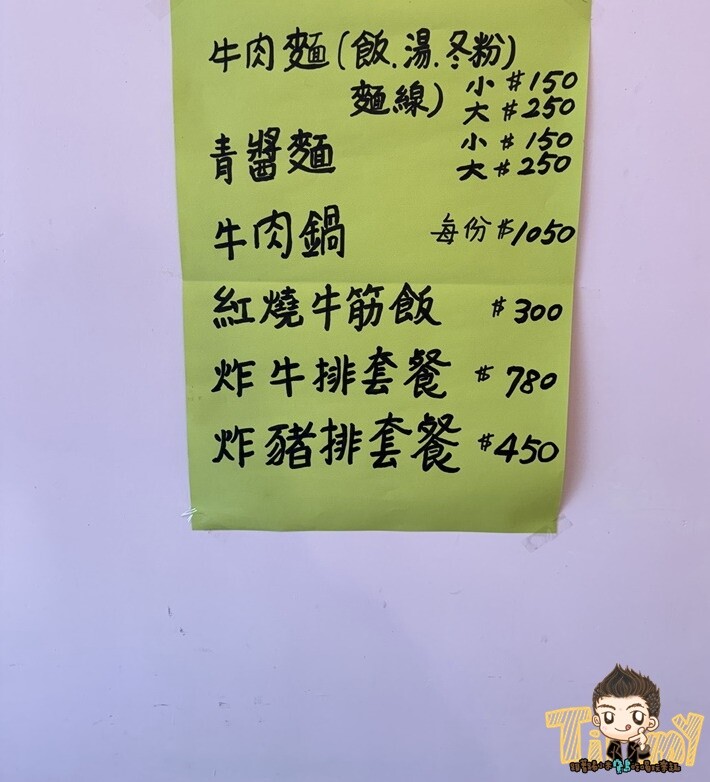 牛肉麵(飯.湯.冬粉)
麵線) 小 #150
大 #250
青醬麵 小 #150
大 #250
牛肉鍋 每份 #1050
紅燒牛筋飯 #300
炸牛排套餐 # 780
炸豬排套餐 #450